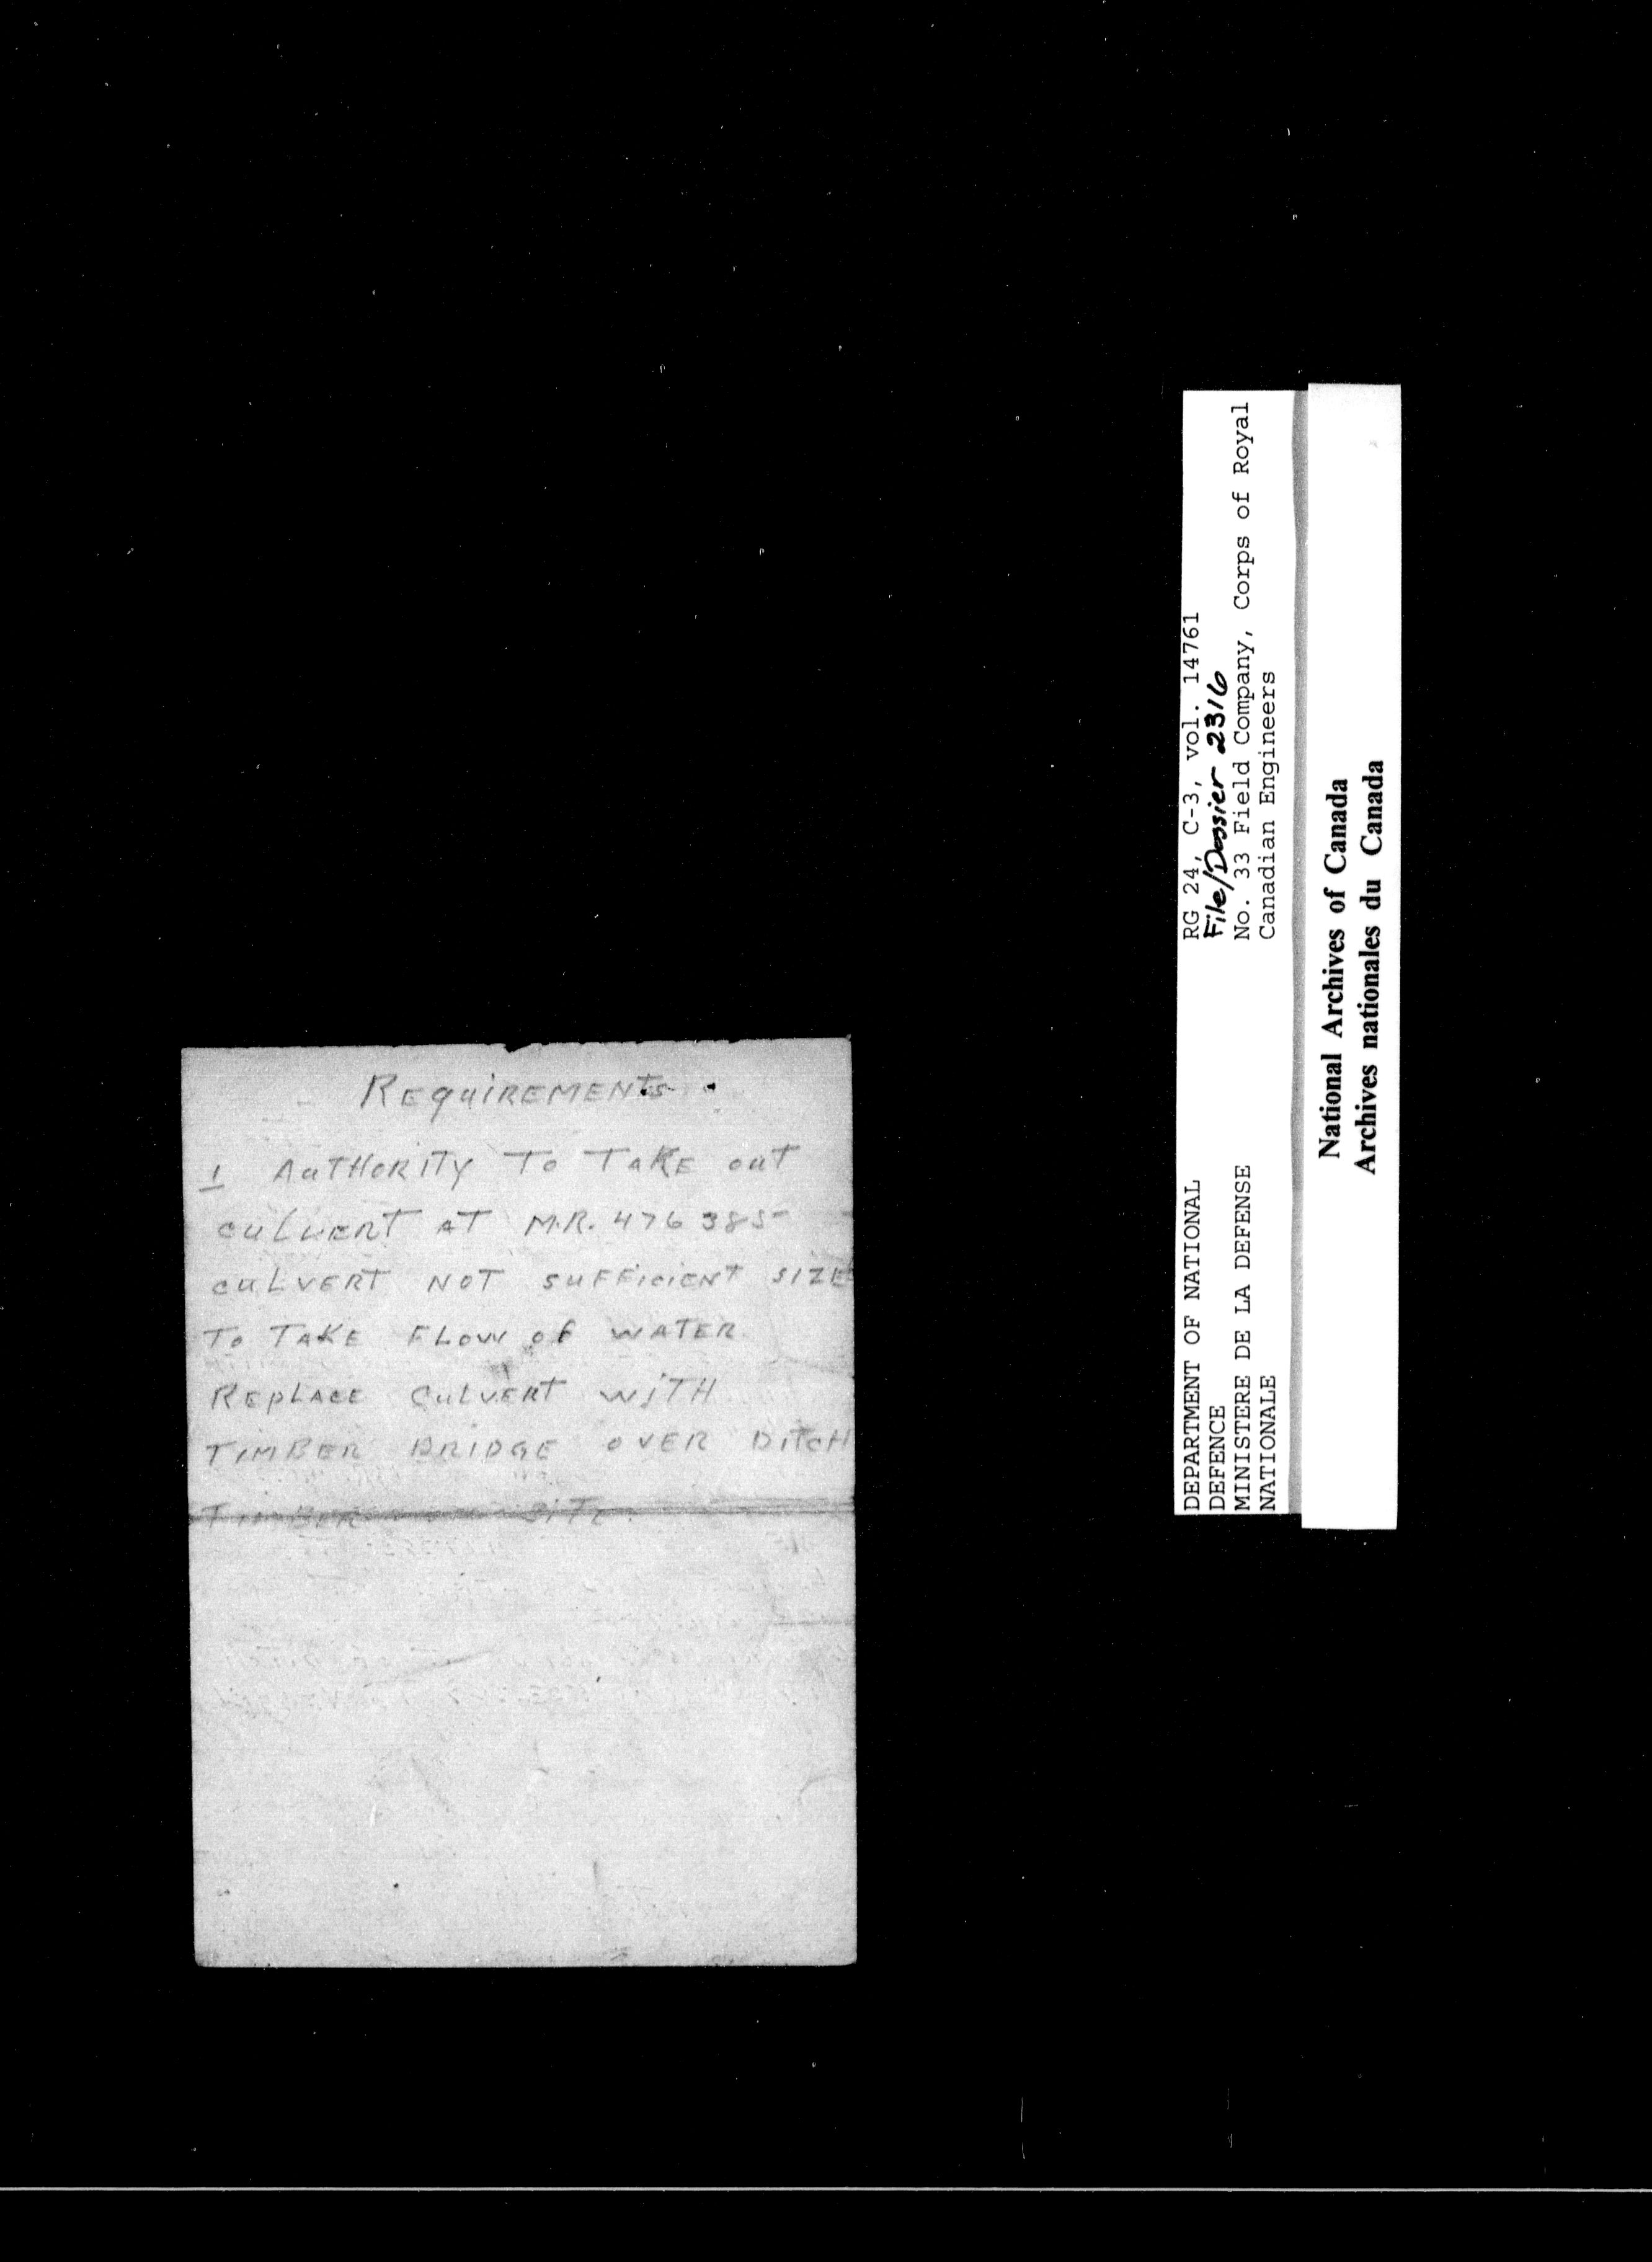 REQUIREMENTS.
1 AUTHORITY TO TAKE OUT
CULVERT AT M.R. 476 385
CULVERT NOT SUFFICIENT SIZE
TO TAKE FLOW OF WATER
REPLACE CULVERT WITH
TIMBER BRIDGE OVER DITCH
TIMBER SITE.
DEPARTMENT OF NATIONAL
DEFENCE
MINISTERE DE LA DEFENSE
NATIONALE
RG 24, C-3, vol. 14761
File/Dossier 2316
No. 33 Field Company, Corps of Royal
Canadian Engineers
National Archives of Canada
Archives nationales du Canada